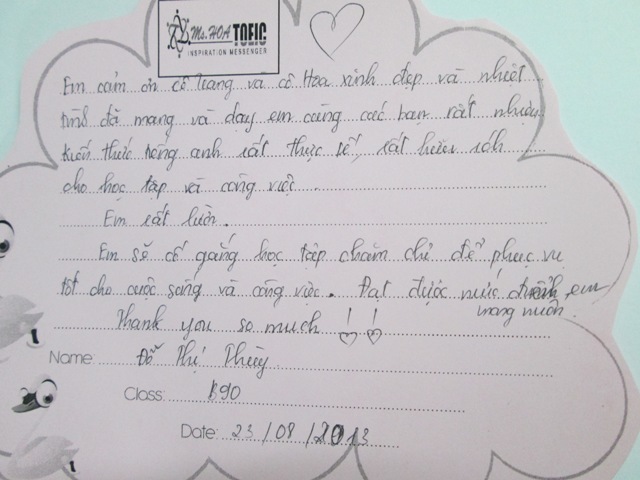 Ms. HOA TOEIC
INSPIRATION MESSENGER
Em cảm ơn cô Trang và cô Hoa xinh đẹp và nhiệt
tình đã mang và dạy em cùng các bạn rất nhiều
kiến thức tiếng anh rất thực tế, rất hữu ích
cho học tập và công việc.
Em rất lười.
Em sẽ cố gắng học tập chăm chỉ để phục vụ
tốt cho cuộc sống và công việc. Đạt được mức em
mong muốn.
Thank you so much !!
Name: Đỗ Thị Thùy
Class: B90
Date: 23/08/2013